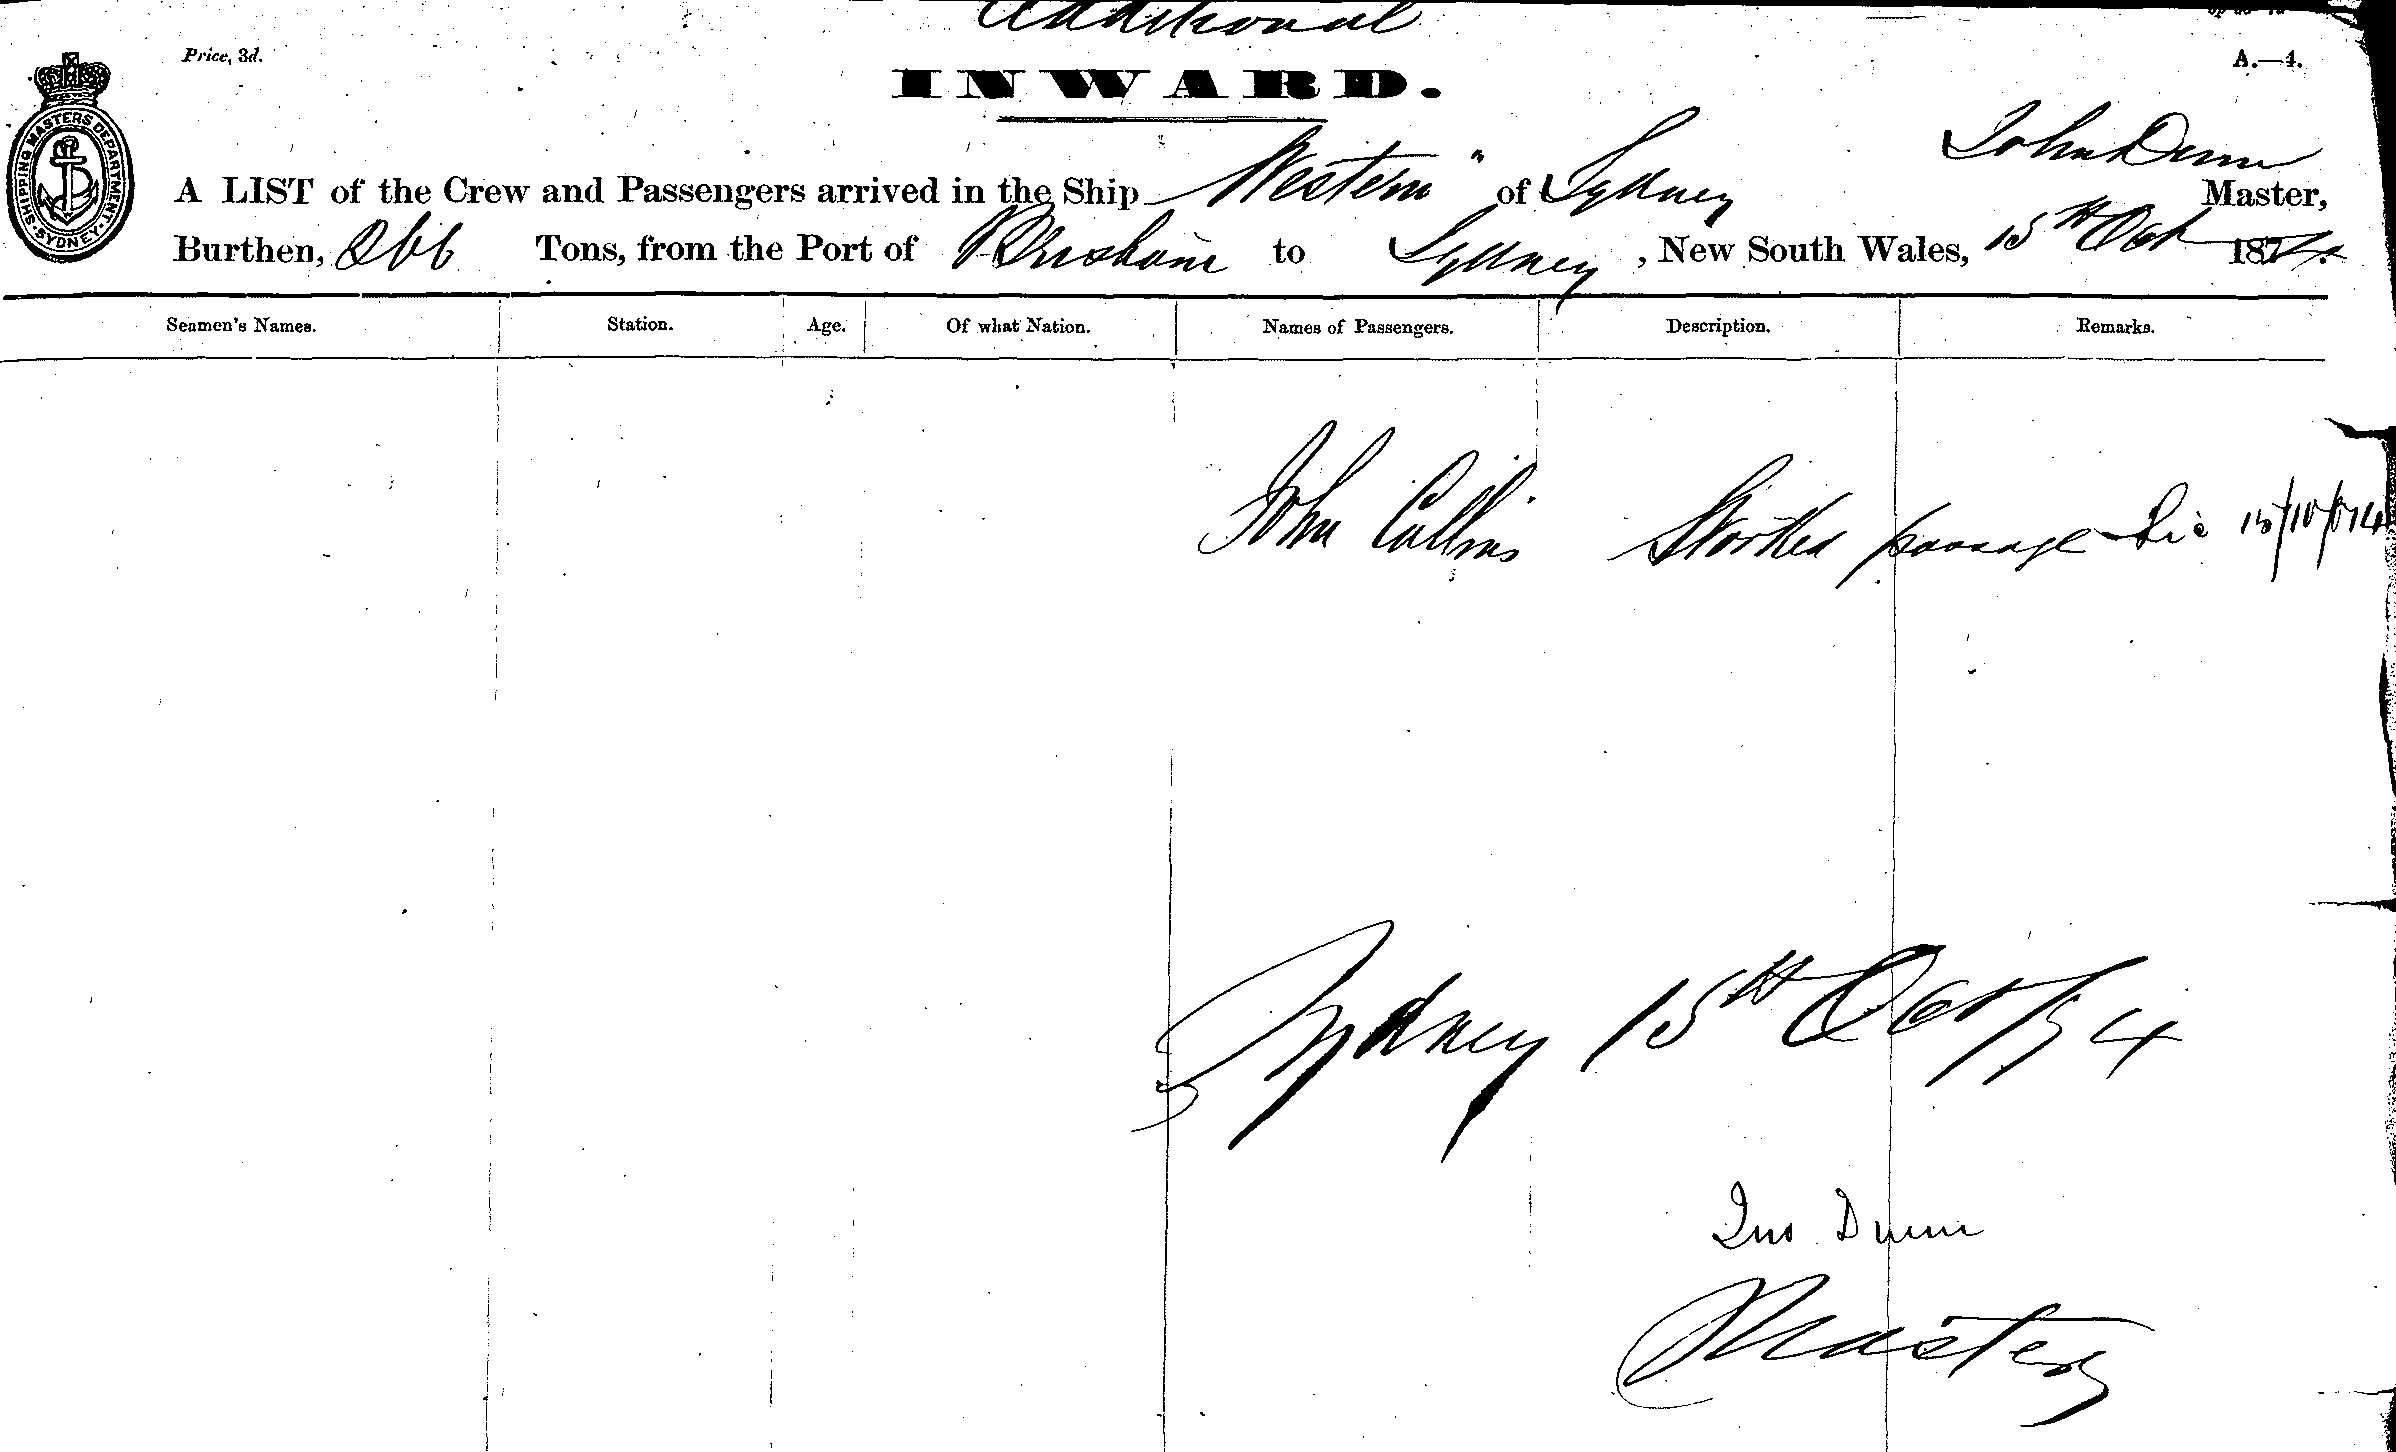 Additional
Price, 3d.
A.—4.
INWARD.
SHIPPING MASTERS DEPARTMENT
SYDNEY
John Dunn
A LIST of the Crew and Passengers arrived in the Ship Western" of Sydney Master,
Burthen, 266 Tons, from the Port of Brisbane to Sydney, New South Wales, 15th Oct 1874.
Seamen's Names. Station. Age. Of what Nation. Names of Passengers. Description. Remarks.
John Collins Worked passage 15/10/74
Sydney 15th Oct/74
Jno Dunn
Master